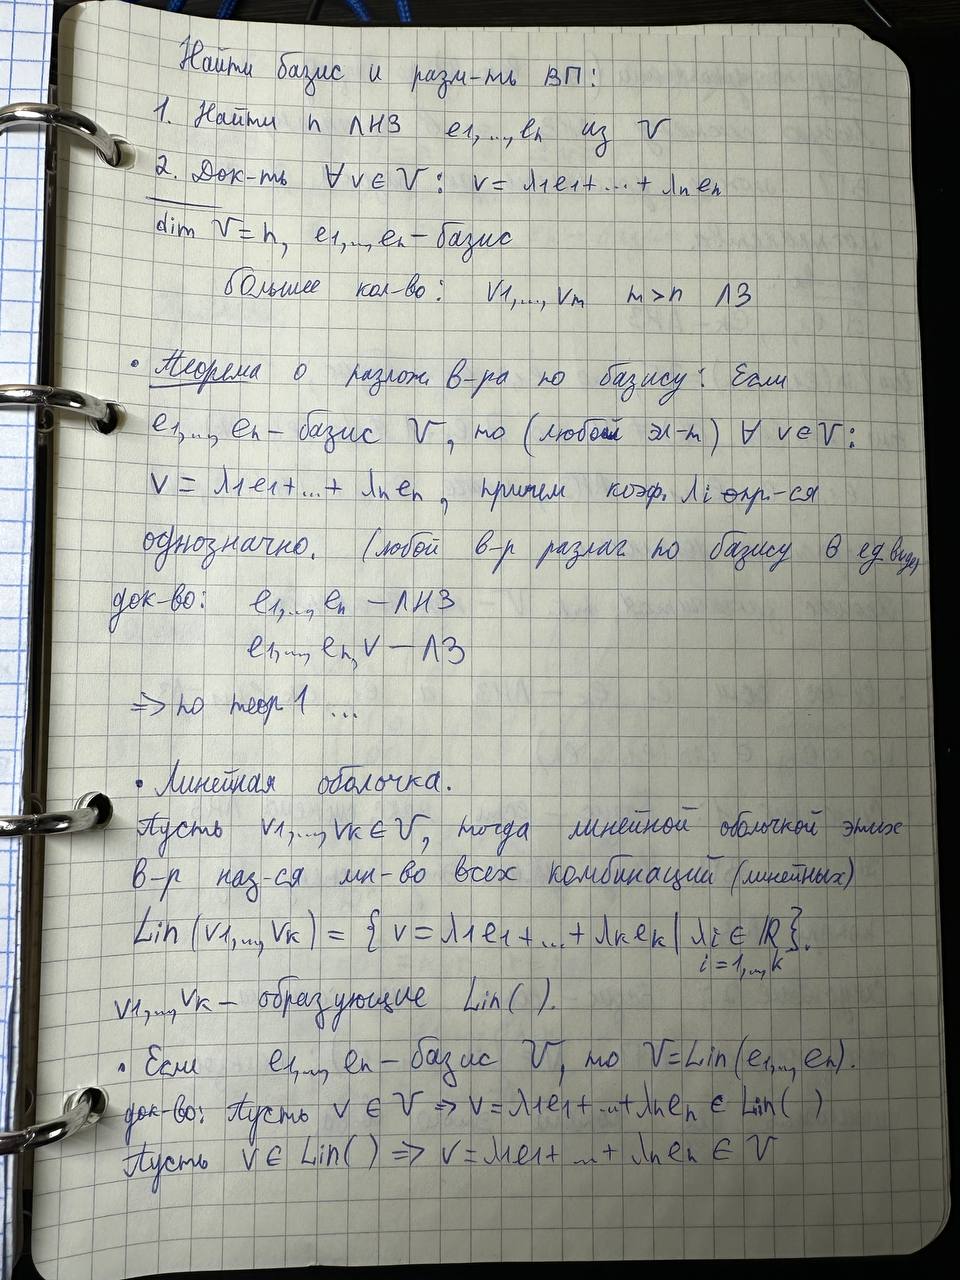 Найти базис и разм-ть ВП:
1. Найти n ЛНЗ e1,...,en из V
2. Док-ть ∀ v ∈ V: v = λ1e1+...+ λnen
dim V = n, e1,...,en – базис
большее кол-во: v1,...,vm m > n ЛЗ
• Теорема о разлож. в-ра по базису: Если
e1,...,en – базис V, то (любой эл-т) ∀ v ∈ V:
v = λ1e1+...+ λnen, причем коэф. λi опр-ся
однозначно. (любой в-р разлаг по базису в ед виде)
док-во: e1,...,en – ЛНЗ
e1,...,en,v – ЛЗ
=> по теор 1 ...
• Линейная оболочка.
Пусть v1,...,vk ∈ V, тогда линейной оболочкой этих
в-р наз-ся мн-во всех комбинаций (линейных)
Lin(v1,...,vk) = { v = λ1e1+...+ λkek | λi ∈ ℝ}.
i = 1,...,k
v1,...,vk – образующие Lin( ).
• Если e1,...,en – базис V, то V=Lin(e1,...,en).
док-во: Пусть v ∈ V => v = λ1e1+...+λnen ∈ Lin( )
Пусть v ∈ Lin( ) => v = λ1e1+...+ λnen ∈ V